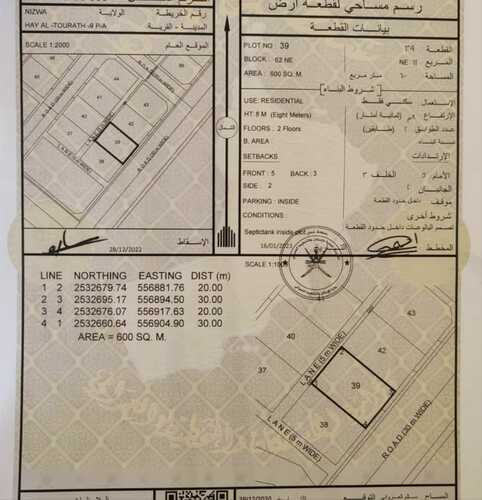 رسم مساحي لقطعة أرض
NIZWA
الولاية
رقم الخريطة
HAY AL -TOURATH -9 P/A
المدينة - القرية
SCALE 1:2000
الموقع العام
بيانات القطعة
PLOT NO : 39
٣٩
القطعة
BLOCK : 62 NE
NE ٦٢
المربع
AREA : 600 SQ. M.
٦٠٠ متر مربع
المساحة
[ شروط البناء ]
USE: RESIDENTIAL
سكني فقط
الإستعمال
HT: 8 M (Eight Meters)
٨م (ثمانية أمتار)
الإرتفاع
FLOORS : 2 Floors
٢ (طابقين)
عدد الطوابق
B. AREA
نسبة البناء
SETBACKS
الإرتدادات
FRONT : 5 BACK : 3
الخلف ٣
الأمام ٥
SIDE : 2
الجانبان ٢
PARKING : INSIDE
داخل حدود القطعة
موقف
CONDITIONS :
شروط أخرى
Septictank inside plot
تصمم البالوعات داخل حدود القطعة
40
42
39
38
ROAD
شمال
28/12/2022
الإسقاط
16/01/2023
المخطط
LINE NORTHING EASTING DIST (m)
1 2 2532679.74 556881.76 20.00
2 3 2532695.17 556894.50 30.00
3 4 2532676.07 556917.63 20.00
4 1 2532660.64 556904.90 30.00
AREA = 600 SQ. M.
SCALE 1:1000
40
42
37
39
38
LANE (5 m WIDE)
LANE (5 m WIDE)
ROAD (20 m WIDE)
التوقيع